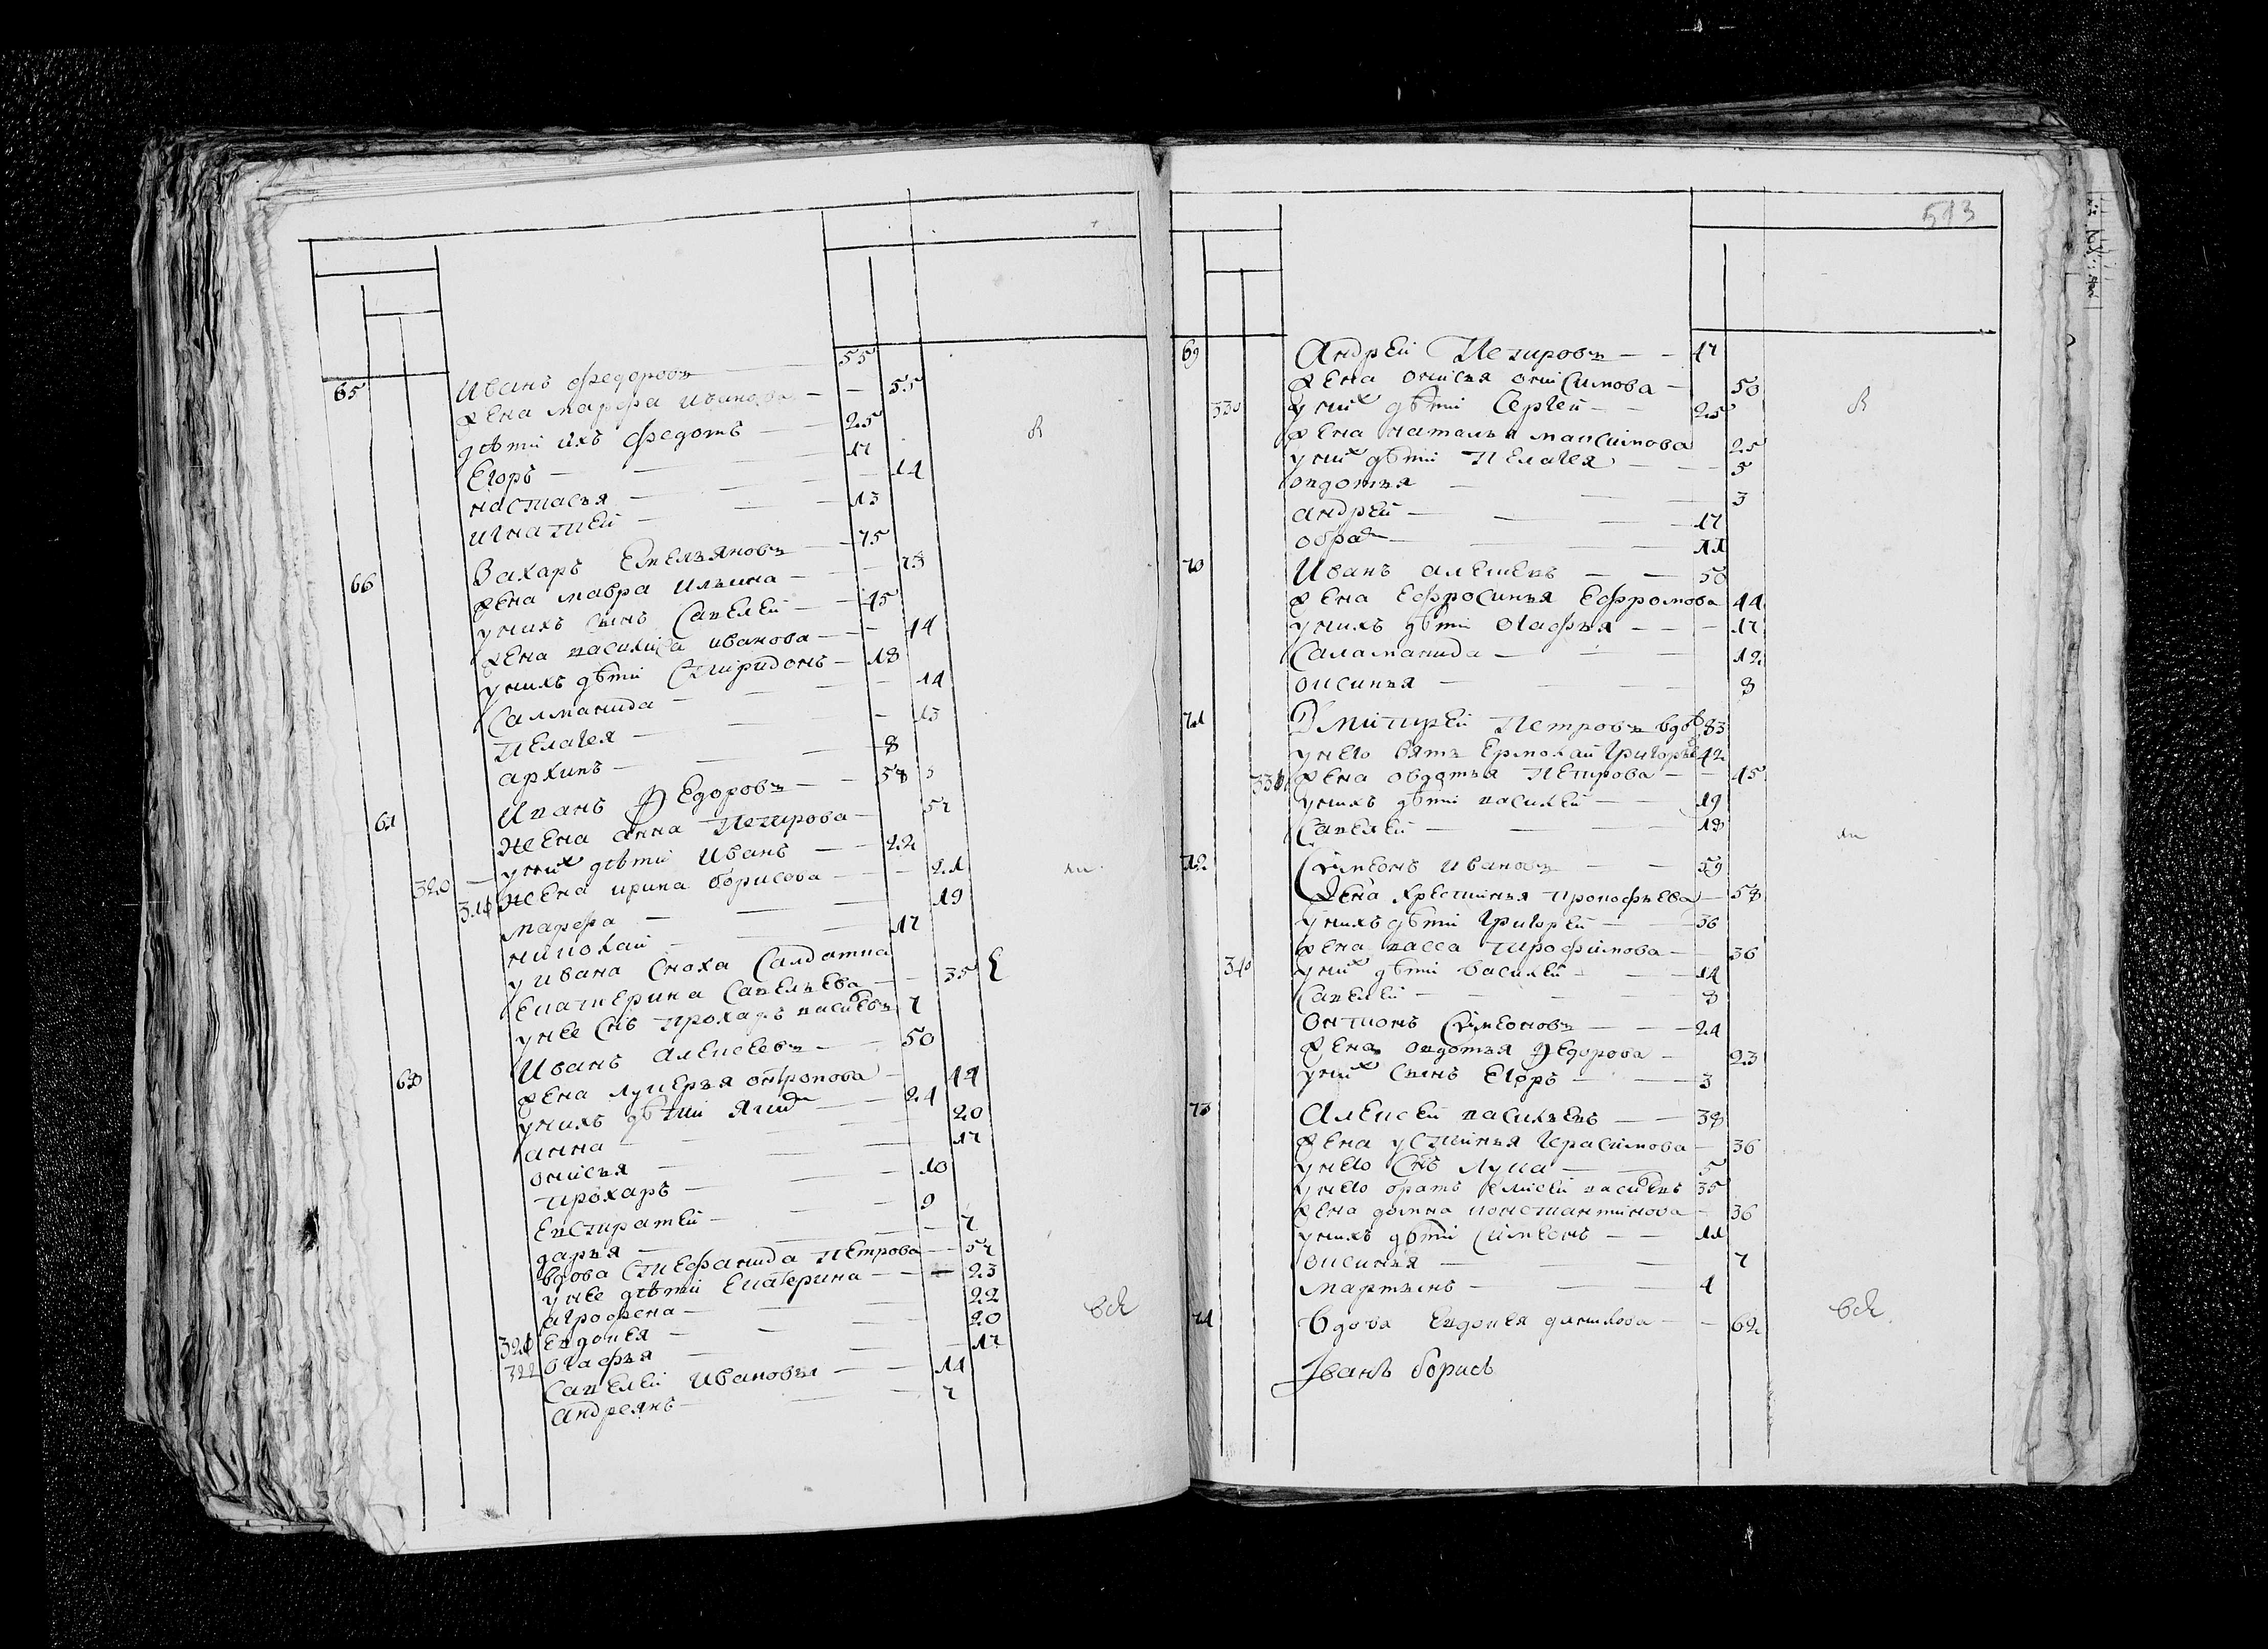 65 Иванъ Федоровъ — 55
жена марфа иванова — 55
дѣти ихъ федотъ — 25
Егоръ — 17
настасья — 14
игнатей — 13
66 Захаръ Емельяновъ — 75
жена мавра ильина — 73
у нихъ сынъ савелей — 45
жена василиса иванова — 44
у нихъ дѣти спиридонъ — 18
саламанида — 14
пелагея — 13
архипъ — 8
67 Иванъ Федоровъ — 58
жена анна петрова — 57
320 у них дѣти Иванъ — 22
жена ирина борисова — 21
марфа — 19
николай — 17
у ивана сноха салдатка
екатерина савельева — 35
у нее снъ прохаръ васильевъ 7
68 Иванъ алексеевъ — 50
жена лукерья онтропова — 49
у нихъ дѣти — 24
анна — 20
онисья — 17
прохаръ — 10
евстратей — 9
дарья — 7
вдова стефанида петрова — 57
у нее дѣти екатерина — 23
агрофена — 22
321 евдокея — 20
322 огафья — 17
савелей ивановъ — 14
андреянъ — 7
513
69 Андрей Петровъ — 47
жена онисья онисимова — 50
330 у них дѣти Сергей — 25
жена наталья максимова 25
у них дѣти пелагея — 5
овдотья — 3
андрей — 17
— 11
70 Иванъ алексеевъ — 50
жена Ефросинья Ефромова 44
у нихъ дѣти огафья — 17
саламанида — 12
оксинья — 8
71 Дмитрей Петровъ вдовъ 83
у него зять Ермолай Григорьев 42
жена овдотья петрова — 45
у нихъ дѣти василей — 19
савелей — 18
72 Симеонъ ивановъ — 59
жена хрестинья прокофьева — 58
у нихъ дѣти григорей — 36
жена васса трофимова — 36
340 у них дѣти василей — 14
савелей — 8
онтонъ симеоновъ — 24
жена овдотья Федорова — 23
у них сынъ егоръ — 3
73 Алексей васильевъ — 38
жена устинья герасимова — 36
у него снъ лука — 5
у него братъ елисей васильевъ 35
жена домна константинова — 36
у нихъ дѣти симеонъ — 11
оксинья — 7
мартынъ — 4
74 вдова евдокея данилова — 62
Иванъ борисъ